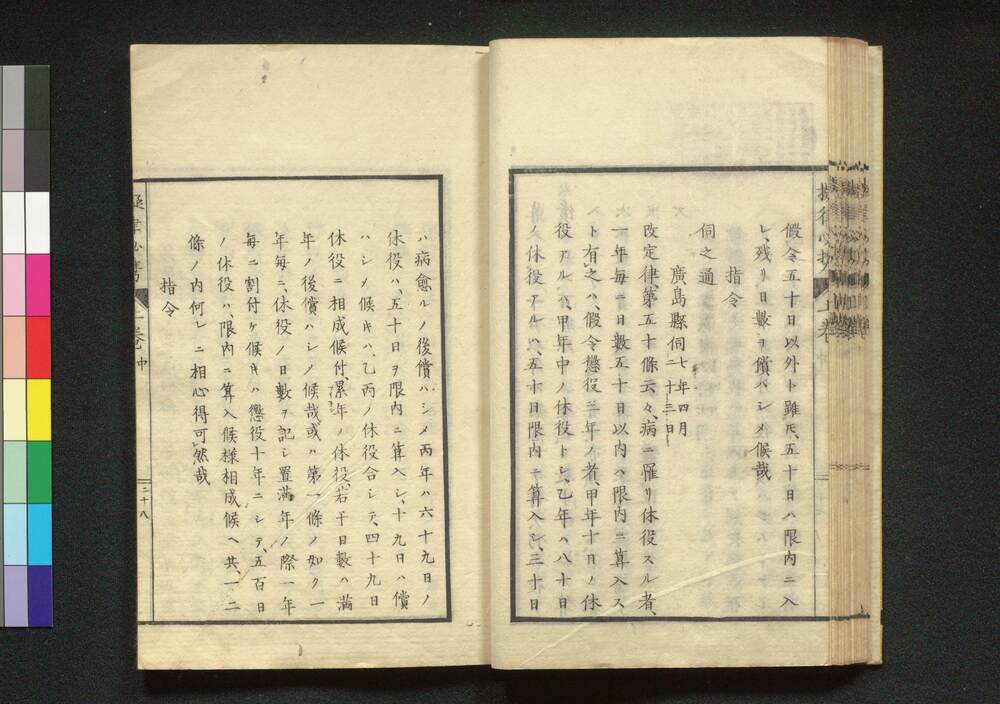 假令五十日以外ト雖𪜈、五十日ハ限内ニ入
レ、残リ日數ヲ償ハシメ候哉
指令
伺之通
廣島縣伺 七年四月二十三日
改定律、第五十條云々、病ニ罹リ休役スル者、
一年毎ニ日數五十日以内ハ限内ニ算入ス
ト有之ハ、假令懲役三年ノ者、甲年十日ノ休
役アルハ、甲年中ノ休役トシ、乙年ハ八十日
ノ休役アルハ、五十日限内ニ算入シ、三十日
ハ病愈ルノ後償ハシメ丙年ハ六十九日ノ
休役ハ、五十日ヲ限内ニ算入シ、十九日ハ償
ハシメ候𪜈ハ、乙丙ノ休役合シテ、四十九日
休役ニ相成候付、累年ノ休役、若干日數ハ満
年ノ後償ハシノ候哉或ハ第一條ノ如ク一
年毎ニ、休役ノ日數ヲ記シ置満年ノ際一年
毎ニ割付ケ候𪜈ハ懲役十年ニシテ、五百日
ノ休役ハ、限内ニ算入候様相成候ヘ共、一二
條ノ内何レニ相心得可然哉
指令
二十八